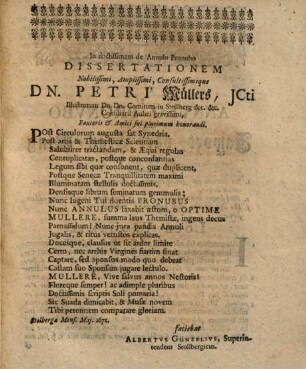 In doctissimam de Annulo Pronubo
DISSERTATIONEM
Nobilissimi, Amplissimi, Consultissimique
DN. PETRI Müllers, JCti
Illustrium Dn. Dn. Comitum in Stolberg &c. &c.
Consiliarii Aulici gravissimi,
Fautoris & Amici sui plurimum honorandi.
Post Circulorum augusta sat Synedria,
Post artis & Themisticæ Scientiam
Salubriter tractandam, & Æqui regulas
Centuplicatas, postque concordantias
Legum sibi quæ consonent, quæ duplicent,
Postque Senecæ Tranquillitatem maximi
Illuminatam stellulis doctissimis,
Densisque librum seminatum gemmulis;
Nunc Ingeni Tui nitentis PRONUBUS
Nunc ANNULUS laxabit æstum, o OPTIME
MULLERE, summa laus Themistæ, ingens decus
Parnassidum! Nunc jura pandis Annuli
Jugalis, & ritus vetustos explicas,
Doceisque, clausius ut sit ardor limite
Certo, nec archis Virgines furtim sinat
Captare, sed sponsus modo quo debeat
Castam suo Sponsam jugare lectulo.
MULLERE, Vive salvus annos Nestoris!
Floreque semper! ac adimple pluribus
Doctissimis scriptis Soli pomaria!
Sic Suada dimicabit, & Musæ novem
Tibi perennem comparare gloriam.
Stolbergæ Mens. Maj. 1672.
faciebat
ALBERTUS GUNZELIUS, Superin-
tendens Stolbergicus.